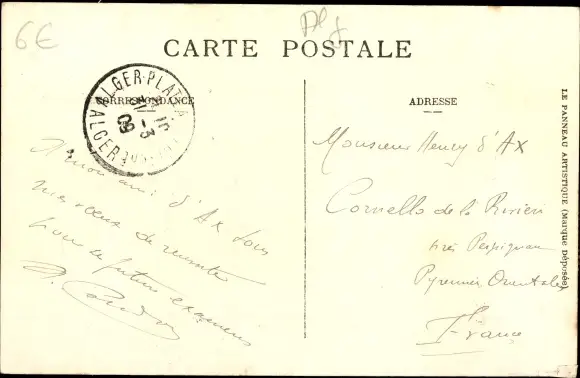 6€
Alg
CARTE POSTALE
CORRESPONDANCE
ALGER-PLAT
ALGER
09
A mon ami d'Ax tous
mes vœux de réussite
pour de futurs examens
ADRESSE
Monsieur Henry d'Ax
Cornella de la Rivière
près Perpignan
Pyrénées Orientales
France
LE PANNEAU ARTISTIQUE (Marque Déposée)